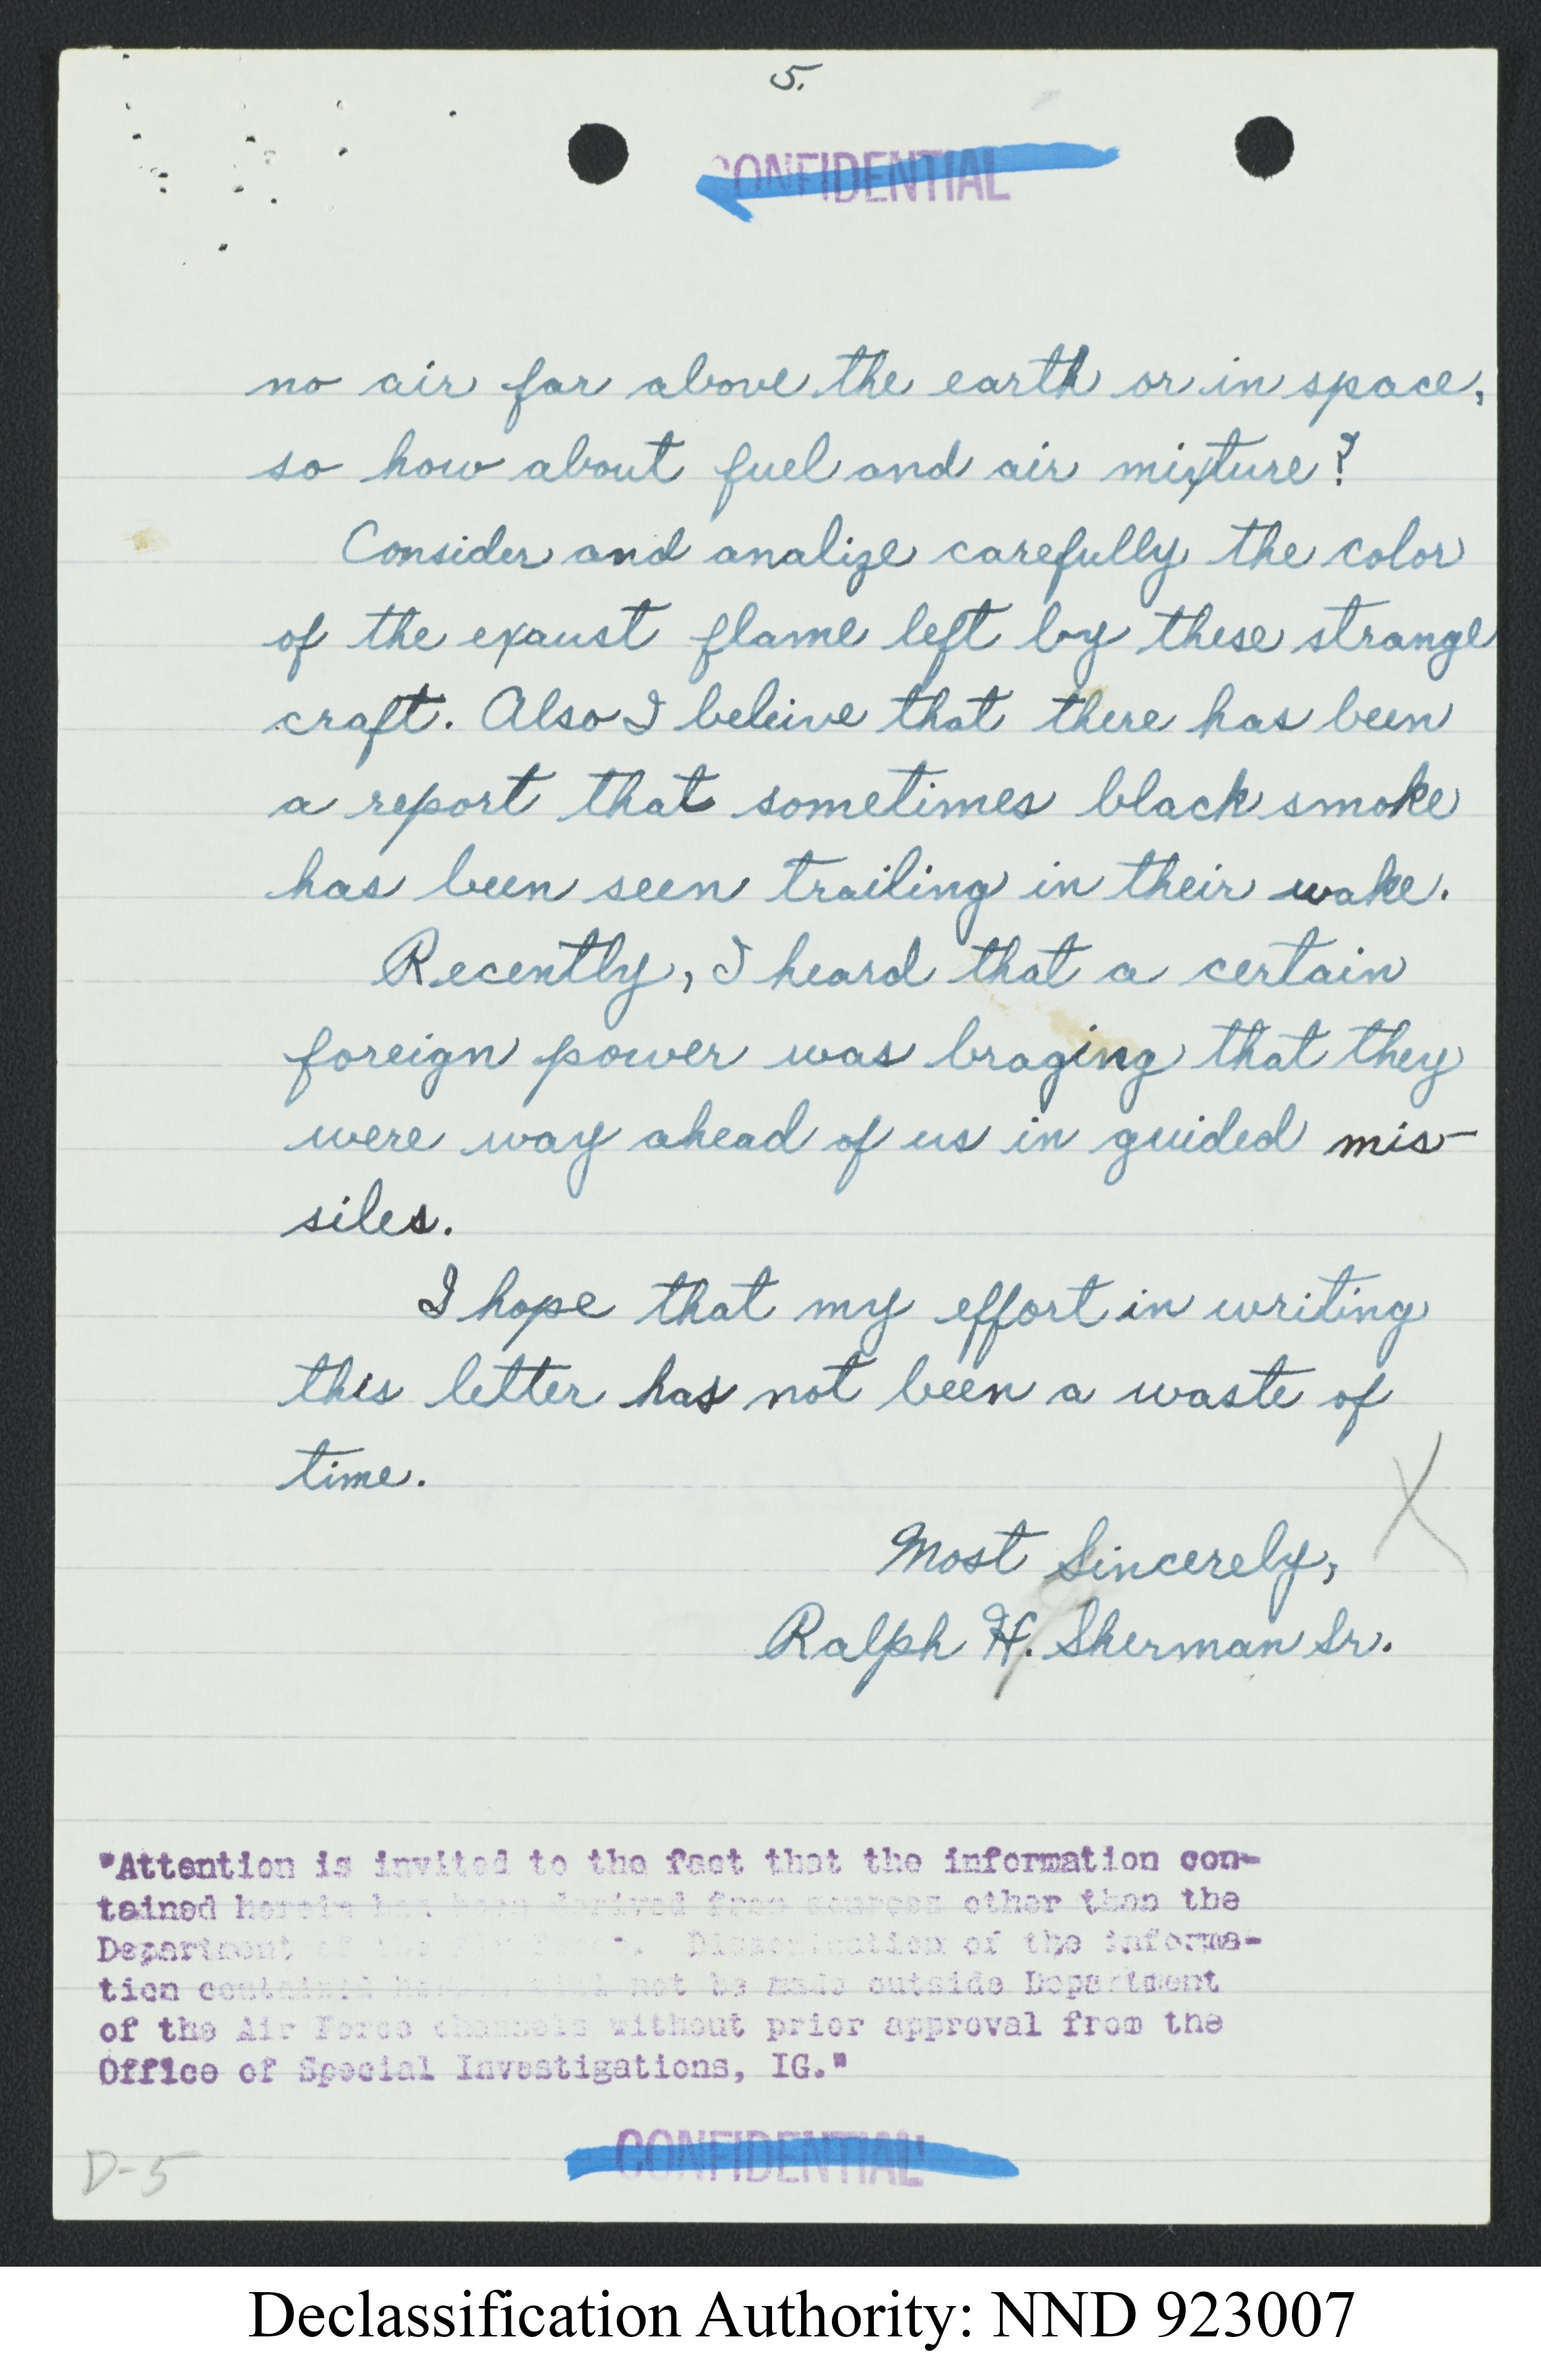 5.
CONFIDENTIAL
no air far above the earth or in space,
so how about fuel and air mixture?
Consider and analize carefully the color
of the exaust flame left by these strange
craft. Also I beleive that there has been
a report that sometimes black smoke
has been seen trailing in their wake.
Recently, I heard that a certain
foreign power was braging that they
were way ahead of us in guided mis-
siles.
I hope that my effort in writing
this letter has not been a waste of
time.
X
Most Sincerely,
Ralph H. Sherman Sr.
"Attention is invited to the fact that the information con-
tained herein has been derived from sources other than the
Department of the Dissemination of the informa-
tion contained not be made outside Department
of the Air Force channels without prior approval from the
Office of Special Investigations, IG."
CONFIDENTIAL
D-5
Declassification Authority: NND 923007